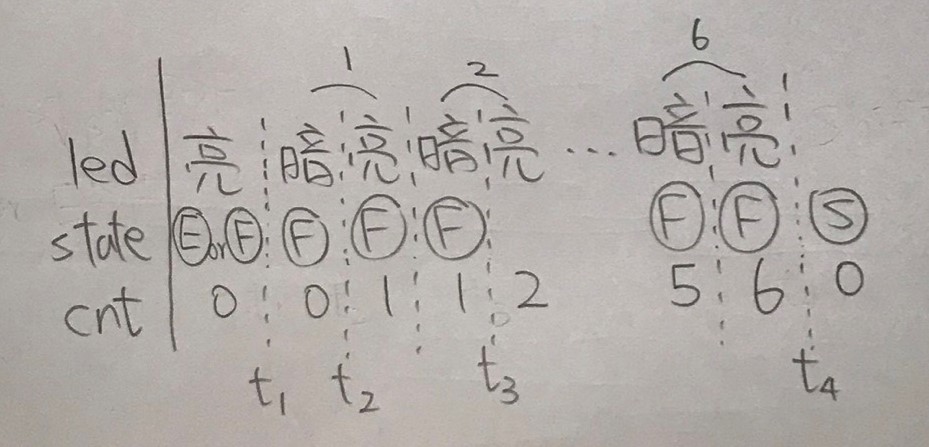 1 2 6
led 亮 暗 亮 暗 亮 ... 暗 亮
state E or F F F F F F S
cnt 0 0 1 1 2 5 6 0
t1 t2 t3 t4